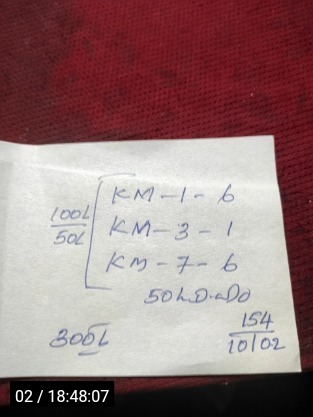 KM-1-6
100L
KM-3-1
50L
KM-7-6
154
300L
10/02
02 / 18:48:07